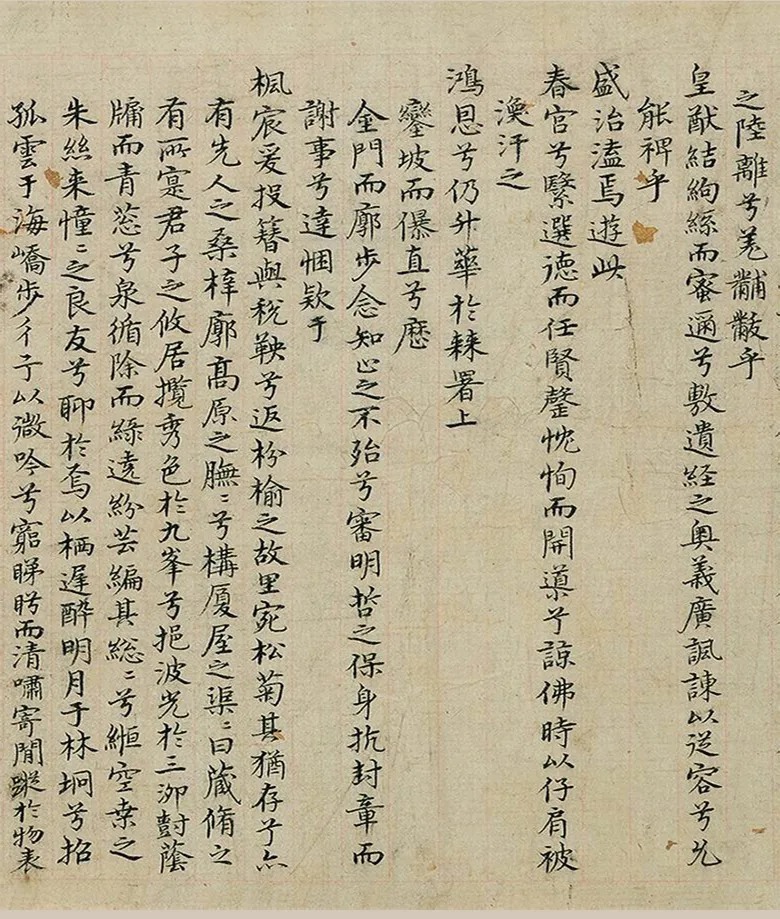 之陸離兮羌黼黻乎
皇猷結絇絲而蜜邇兮敷遺経之奥義廣諷諫以従容兮允
能裨乎
盛治溘焉遊此
春官兮繄選德而任賢罄忱恂而開導兮諒佛時以仔肩被
渙汗之
鴻恩兮仍升華於棘署上
鑾坡而儤直兮歷
金門而廓步念知止之不殆兮審明哲之保身抗封章而
謝事兮達悃欵于
楓宸爰投簪與稅鞅兮返枌榆之故里宛松菊其猶存兮亦
有先人之桑梓廓高原之膴〻兮構厦屋之渠〻曰藏脩之
有所寔君子之攸居攬秀色於九峯兮挹波光於三泖對蔭
牖而青蔥兮泉循除而綠遶紛芸編其総〻兮絙空桒之
朱絲来憧〻之良友兮聊於焉以栖遲酔明月于林坰兮招
孤雲于海嶠步彳亍以微吟兮窮睇眄而清嘯寄閒蹤於物表